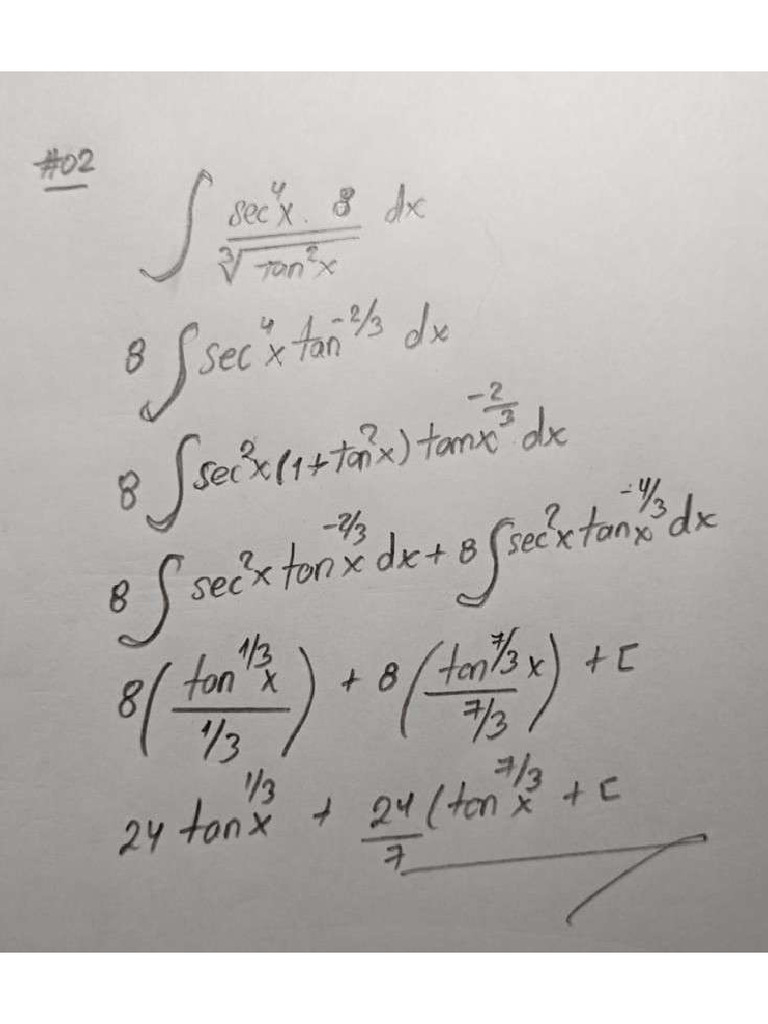 #02
∫ sec⁴x · 8 / ∛tan²x dx
8 ∫ sec⁴x tan^-2/3 dx
8 ∫ sec²x (1 + tan²x) tanx^-2/3 dx
8 ∫ sec²x tan^-2/3 x dx + 8 ∫ sec²x tan^-4/3 x dx
8 (tan^1/3 x / 1/3) + 8 (tan^7/3 x / 7/3) + C
24 tan^1/3 x + 24/7 (tan^7/3 x + C